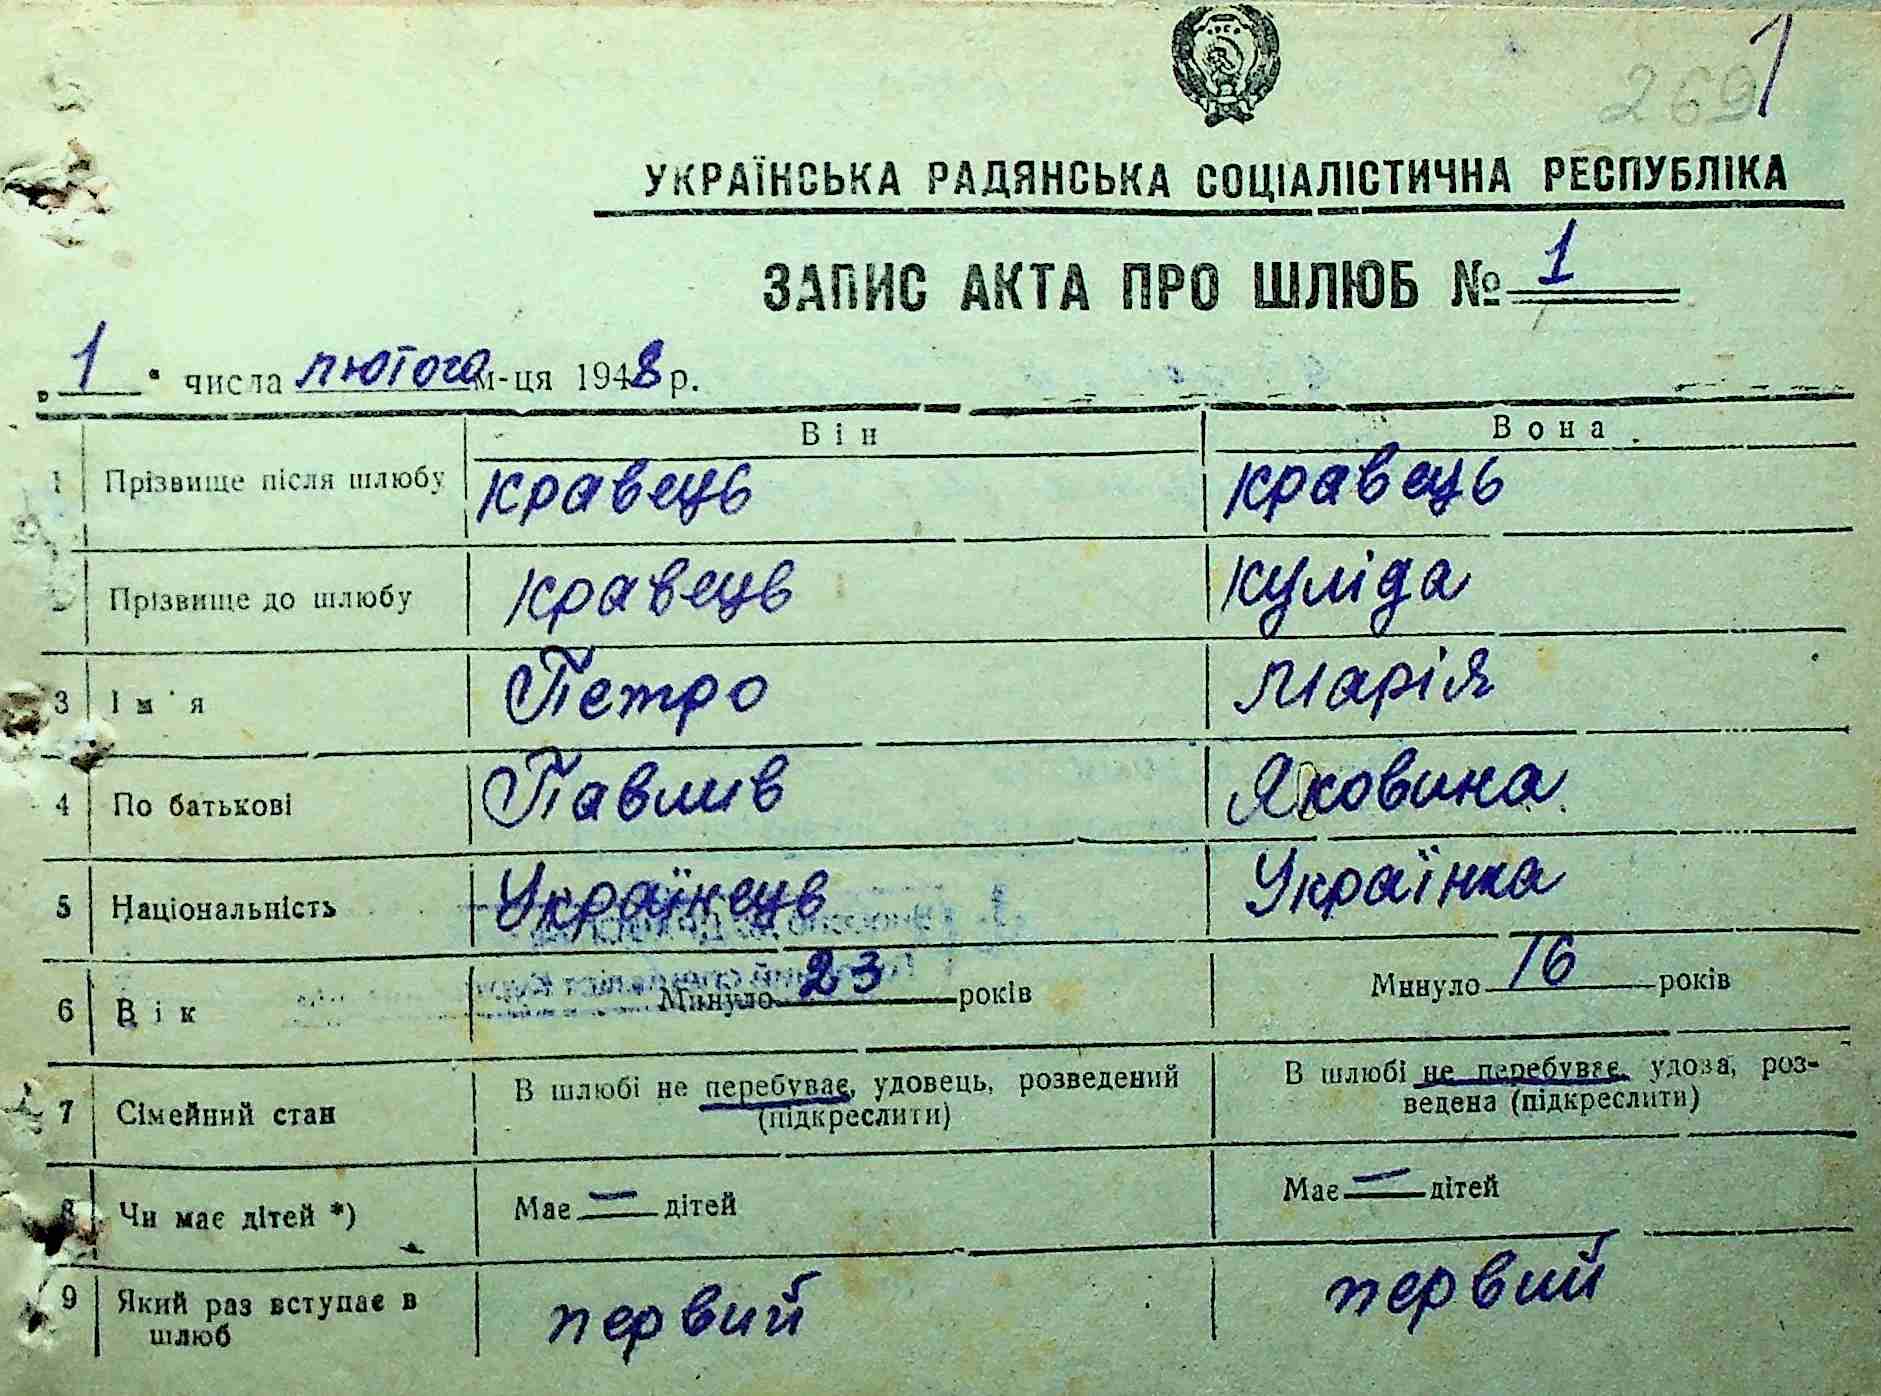 1
269
УКРАЇНСЬКА РАДЯНСЬКА СОЦІАЛІСТИЧНА РЕСПУБЛІКА
ЗАПИС АКТА ПРО ШЛЮБ № 1
„1“ числа лютого м-ця 1948 р.
Він Вона
1 Прізвище після шлюбу Кравець Кравець
2 Прізвище до шлюбу Кравець Куліда
3 Ім'я Петро Марія
4 По батькові Павлив Яковина
5 Національність Українець Українка
6 Вік Минуло 23 років Минуло 16 років
7 Сімейний стан В шлюбі не перебуває, удовець, розведений (підкреслити) В шлюбі не перебуває, удова, роз-
ведена (підкреслити)
8 Чи має дітей *) Має — дітей Має — дітей
9 Який раз вступає в шлюб первий первий